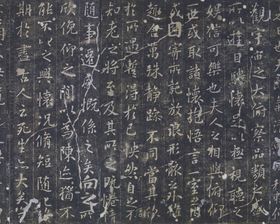 觀宇宙之大俯察品類之盛
所以遊目騁懷足以極視聽之
娛信可樂也夫人之相與俯仰
一世或取諸懷抱悟言一室之內
或因寄所託放浪形骸之外雖
趣舍萬殊靜躁不同當其欣
於所遇暫得於己快然自足不
知老之將至及其所之既惓情
隨事遷感慨係之矣向之所
欣俛仰之間以為陳迹猶不
能不以之興懷況脩短隨化
期於盡古人云死生亦大矣